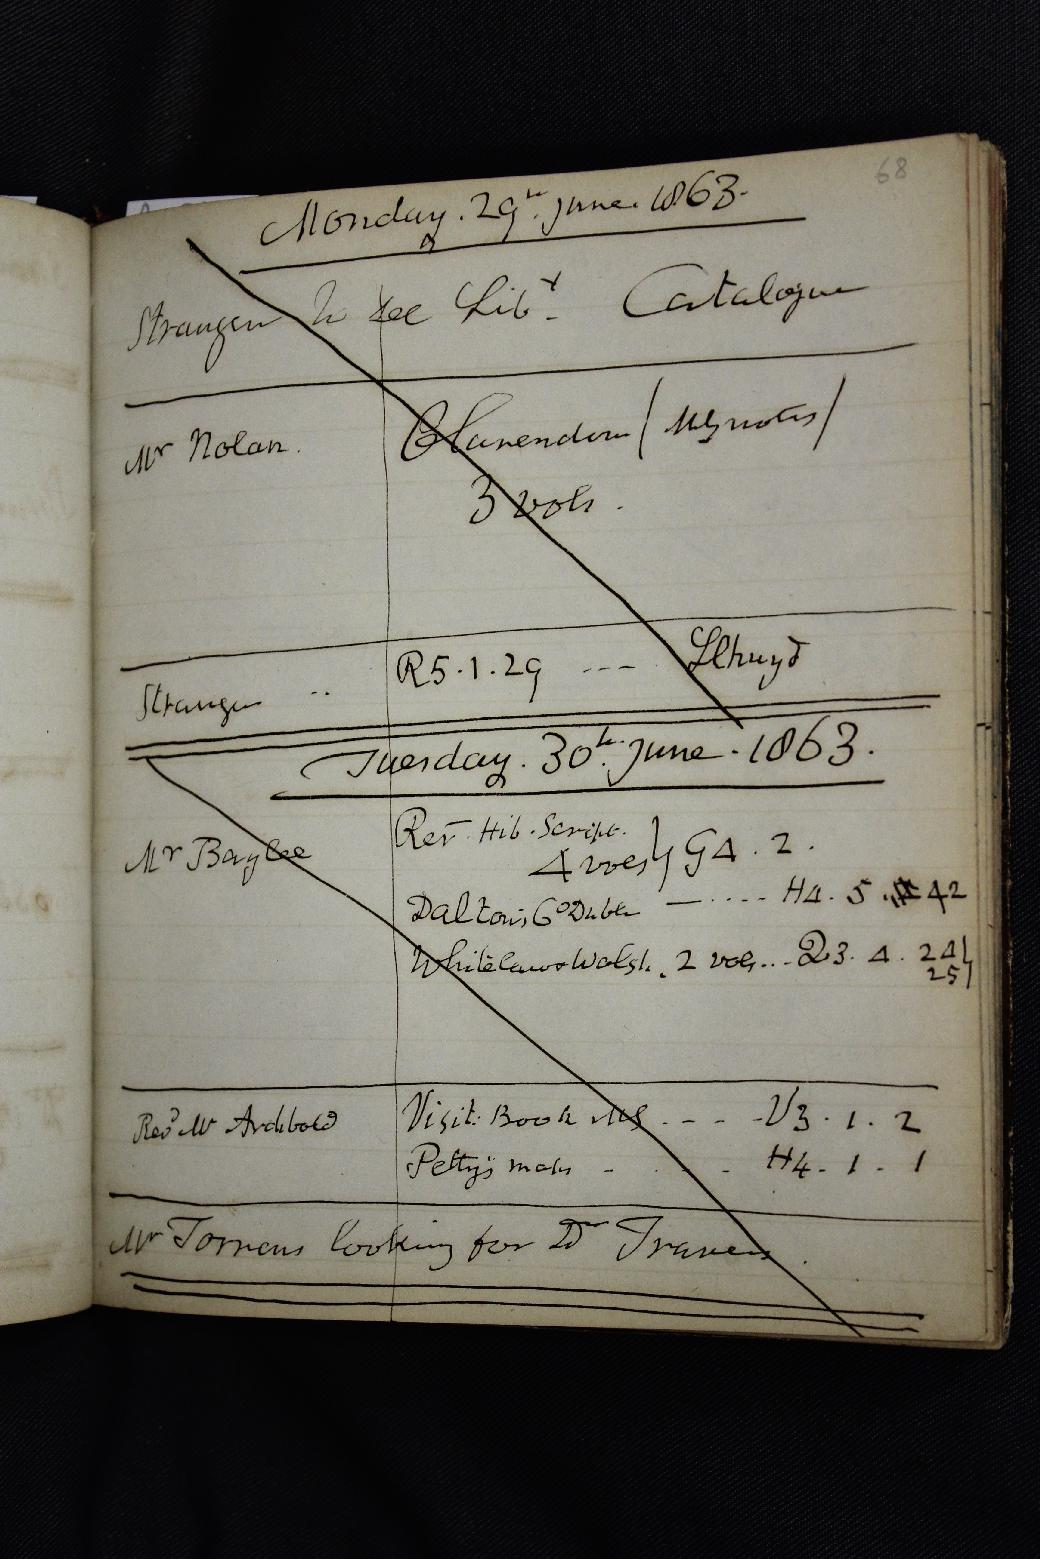 68
Monday. 29th. June. 1863.
Stranger to see Liby. Catalogue
Mr Nolan. Clarendon (MS notes)
3 vols.
Stranger .. R5.1.29 --- Llhuyd
Tuesday. 30th. June. 1863.
Mr Baylee Rer. Hib. Script.
4 vols} G4.2.
Dalton's Co Dublin — .... H4.5. 42
Whitelaw & Walsh. 2 vols... Q3.4.24}
25}
Revd Mr Archbold Visit. Book MS - - - - V3.1.2
Petty's maps - - - - H4-1-1
Mr Torrens looking for Dr Travers.